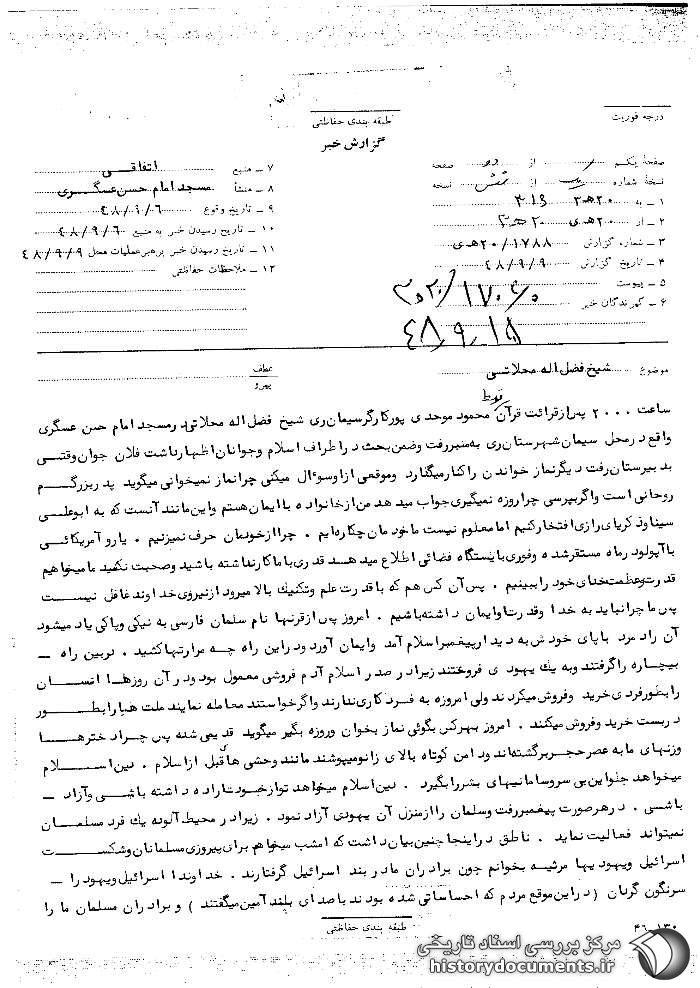 درجه فوریت
طبقه بندی حفاظتی
گزارش خبر
صفحه یکم از دو صفحه
نسخهٔ شماره یک از شش نسخه
۱ – به ۲۰هـ۳ ۳۱۶
۲ – از ۲۰هـی ۲۰هـ۳
۳ – شماره گزارش ۲۰/۱۷۸۸هـی
۴ – تاریخ گزارش ۴۸/۹/۹
۵ – پیوست
۶ – گیرندگان خبر
۷ – منبع اتفاقی
۸ – منشأ مسجد امام حسن عسگری
۹ – تاریخ وقوع ۴۸/۹/۶
۱۰ – تاریخ رسیدن خبر به منبع ۴۸/۹/۶
۱۱ – تاریخ رسیدن خبر به رهبر عملیات محل ۴۸/۹/۹
۱۲ – ملاحظات حفاظتی
۴۸/۹/۱۸
موضوع شیخ فضل اله محلاتی
عطف
پیرو
توسط
ساعت ۲۰۰۰ پس از قرائت قرآن محمود موحدی پور کارگر سیمان ری شیخ فضل اله محلاتی در مسجد امام حسن عسگری
واقع در محل سیمان شهرستان ری به منبر رفت و ضمن بحث در اطراف اسلام و جوانان اظهار داشت فلان جوان وقتی
به دبیرستان رفت دیگر نماز خواندن را کنار میگذارد و موقعی از او سوئوال میکنی چرا نماز نمیخوانی میگوید پدر بزرگم
روحانی است و اگر بپرسی چرا روزه نمیگیری جواب میدهد من از خانواده با ایمان هستم و این مانند آنست که به ابوعلی
سینا و ذکریای رازی افتخار کنیم اما معلوم نیست ما خودمان چکاره ایم . چرا از خودمان حرف نمیزنیم . یارو آمریکائی
با آپولو در ماه مستقر شده و فوری با ایستگاه فضائی اطلاع میدهد قدری با ما کار نداشته باشید و صحبت نکنید ما میخواهیم
قدرت و عظمت خدای خود را ببینیم . پس آن کس هم که با قدرت علم و تکنیک بالا میرود از نیروی خداوند غافل نیست
پس ما چرا نباید به خدا و قدرت او ایمان داشته باشیم . امروز پس از قرنها نام سلمان فارسی به نیکی و پاکی یاد میشود
آن راد مرد با پای خودش به دیدار پیغمبر اسلام آمد و ایمان آورد و در این راه چه مرارتها کشید . در بین راه –
بیچاره را گرفتند و به یک یهودی فروختند زیرا در صدر اسلام آدم فروشی معمول بود و در آن روزها انسان
را بطور فردی خرید و فروش میکردند ولی امروزه به فرد کاری ندارند و اگر خواستند معامله نمایند ملت ها را بطور
دربست خرید و فروش میکنند . امروز بهر کس بگوئی نماز بخوان و روزه بگیر میگوید قدیمی شده پس چرا دخترها
و زنهای ما به عصر حجر برگشته اند و دامن کوتاه بالای زانو میپوشند مانند وحشی های قبل از اسلام . دین اسلام
میخواهد جلو این بی سر و سامانیهای بشر را بگیرد . دین اسلام میخواهد تو از خودت اراده داشته باشی و آزاد –
باشی . در هر صورت پیغمبر رفت و سلمان را از منزل آن یهودی آزاد نمود . زیرا در محیط آلوده یک فرد مسلمان
نمیتواند فعالیت نماید . ناطق در اینجا چنین بیان داشت که امشب میخواهم برای پیروزی مسلمانان و شکست
اسرائیل و یهودیها مرثیه بخوانم چون برادران ما در بند اسرائیل گرفتارند . خداوندا اسرائیل و یهود را –
سرنگون گردان ( در این موقع مردم که احساساتی شده بودند با صدای بلند آمین میگفتند ) و برادران مسلمان ما را
طبقه بندی حفاظتی
۴۶ – ۱۳۰
مرکز بررسی اسناد تاریخی
historydocuments.ir